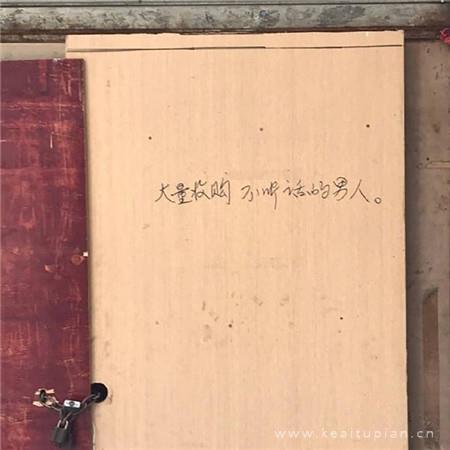 大量收购 不听话的男人。
www.keaitupian.cn